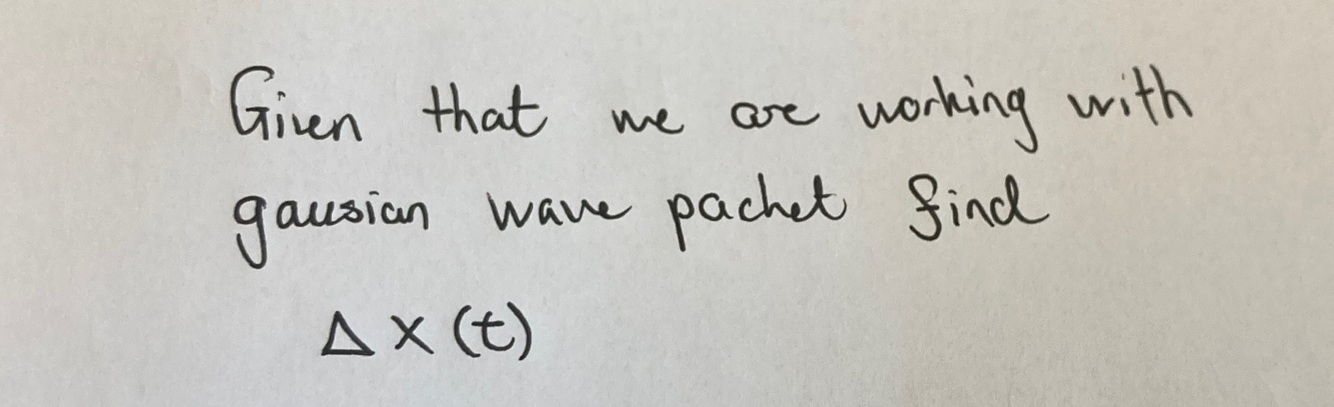 Given that we are working with
gausian wave packet find
Δ x (t)